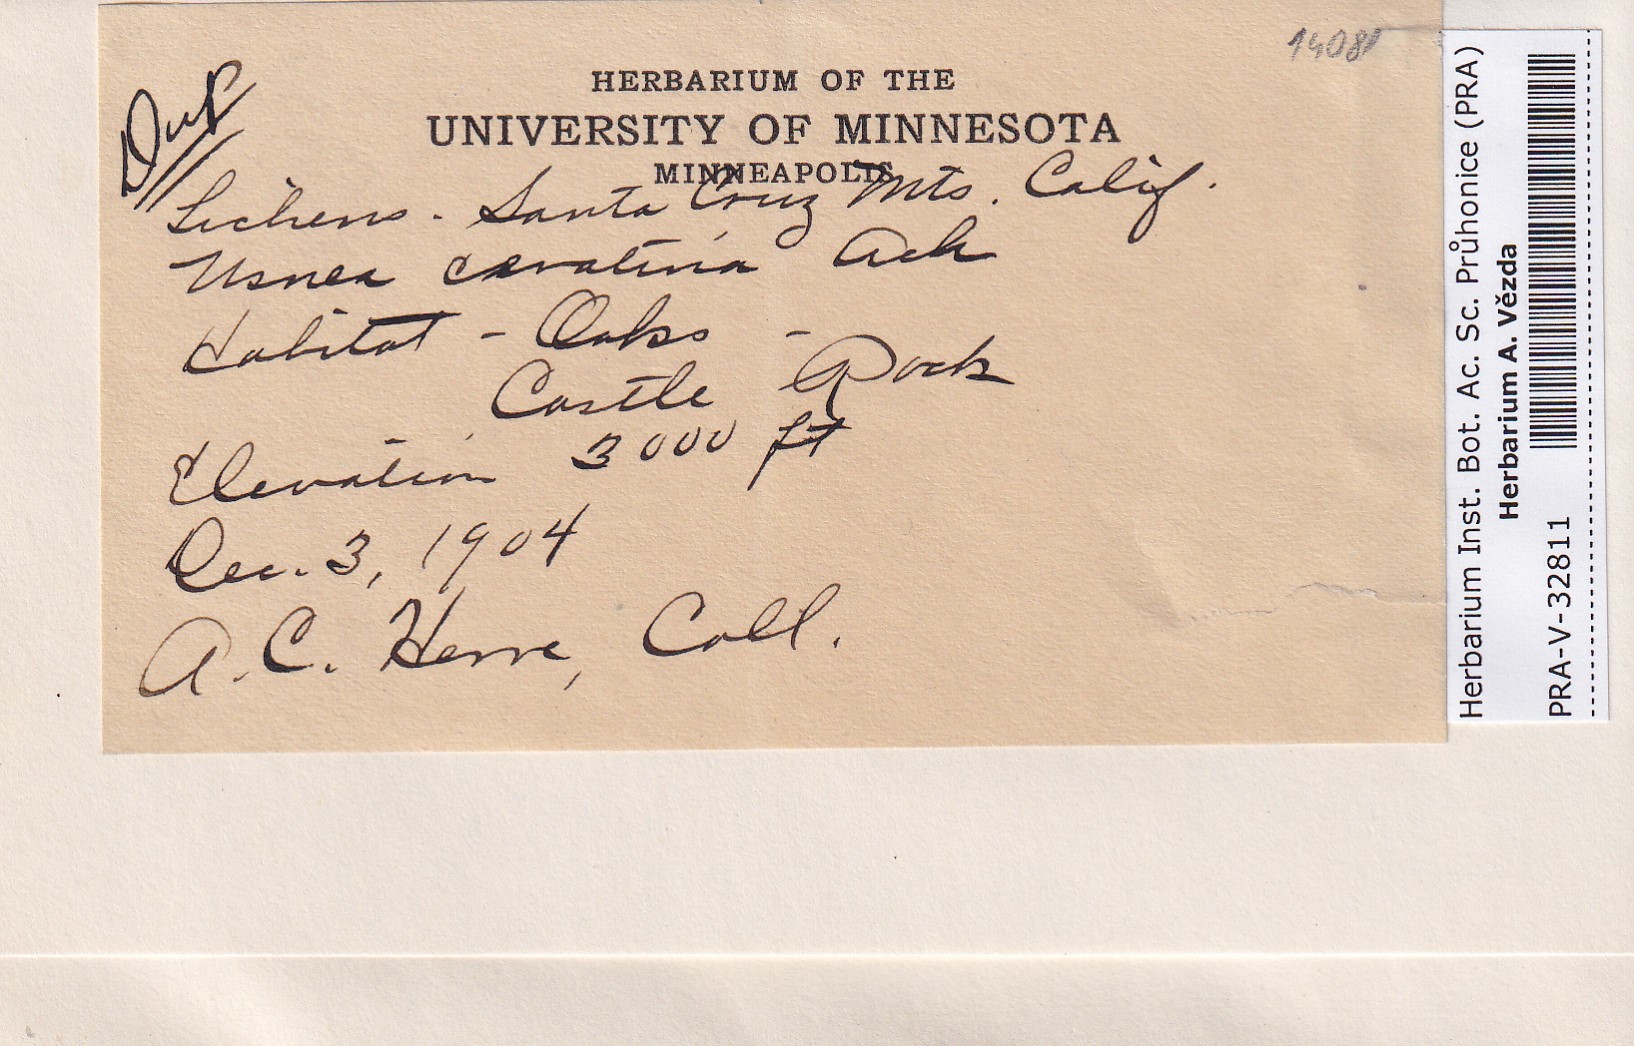 Dup
HERBARIUM OF THE
UNIVERSITY OF MINNESOTA
MINNEAPOLIS
Lichens - Santa Cruz Mts. Calif.
Usnea ceratina Ach
Habitat - Oaks -
Castle Rock
Elevation 3000 ft
Dec. 3, 1904
A. C. Herre, Coll.
Herbarium Inst. Bot. Ac. Sc. Průhonice (PRA)
Herbarium A. Vězda
PRA-V-32811